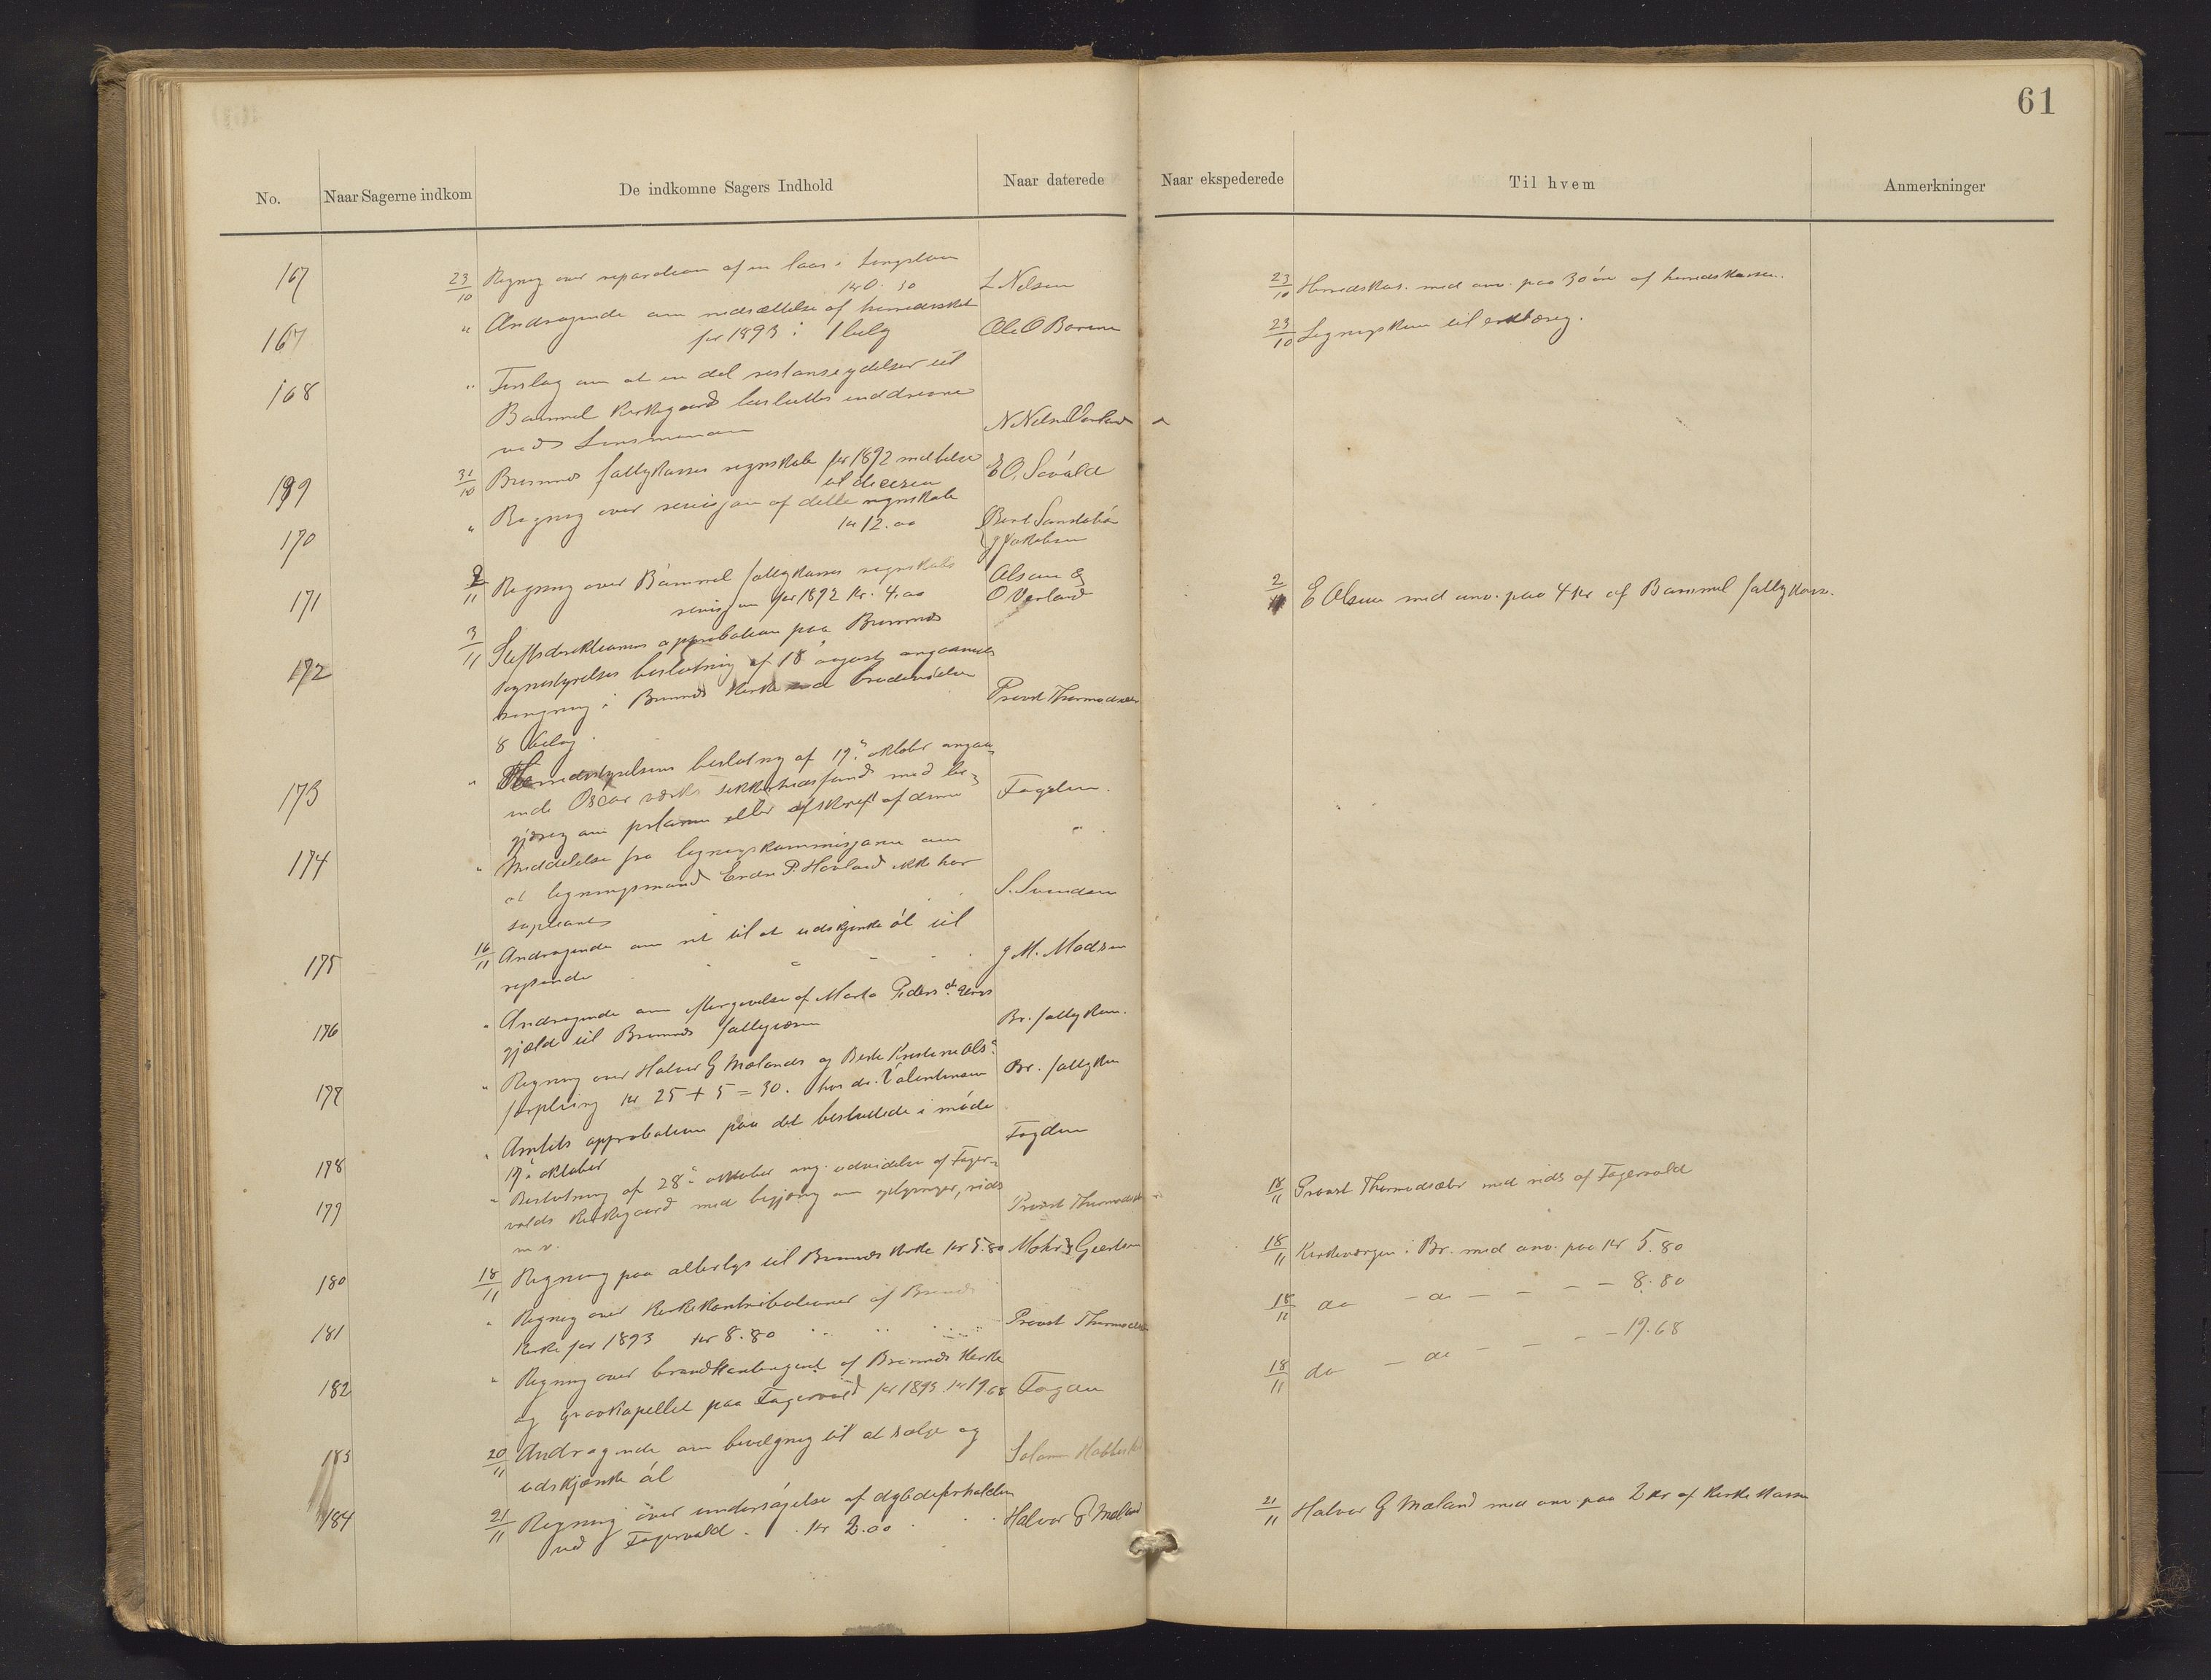 61
No.
Naar Sagerne indkom
De indkomne Sagers Indhold
Naar daterede
Naar ekspederede
Til hvem
Anmerkninger
167 23/10 Regning over reparation af en laas i
kr 0.30 L Nelsen 23/10 Herredskas. med anv. paa 30 øre af herredskassen.
167 " Andragende om nedsættelse af herredsskat
for 1893 : 1 belag Ole O 23/10 Ligningskom til erklæring.
168 " Forslag om at en del restanseydelser til
Bømmel kirkegaard besluttes inddrevne
ved Lensmanden N Nelsen
199 31/10 Bremnes fattigkasses regnskab for 1892 
til decision E O.
170 " Regning over revisjon af dette regnskab
kr 12.00 Bent
171 2/11 Regning over Bømmel fattigkasses regnskabs
revisjon for 1892 kr. 4.00 Olsen &
O Vorland 2/11 E Olsen med anv. paa 4 kr af Bømmel fattigkasse.
172 3/11 Stiftsdirektionens approbation paa Bremnes
sognestyrelses beslutning af 18de august angaaende
i Bremnes kirke
8 belag. Provst Thormodsæter
173 " Herredsstyrelsens beslutning af 19de oktober angaa-
ende Oscar med be-
gjæring om eller afskrift af denne Fogden.
174 " Meddelelse fra ligningskommisjonen om
at ligningsmand Endre P. Hovland ikke har
supleant S. Svendsen
175 16/11 Andragende om ret til at udskjenke øl til
reisende J M. Madsen
176 " Andragende om eftergivelse af Marta Peders d.
gjæld til Bremnes fattigvæsen Br. fattigkom.
177 " Regning over Halvor G Mælands og Berte
forpleining kr 25 + 5 = 30. hos dr. Valentinsen Br. fattigkom
178 " Amtets approbation paa det besluttede i møde
19de oktober Fogden
179 " Beslutning af 28de oktober ang. udvidelse af Fager-
valds kirkegaard med begjæring om oplysninger, rids
m v. Provst Thormodsæter 18/11 Provst Thormodsæter med rids af Fagervald
180 18/11 Regning paa alterlys til Bremnes kirke kr 5.80 Mohr & 18/11 Kirkevergen i Br. med anv. paa kr 5.80
181 " Regning over kirkekontributioner af Bremnes
kirke for 1893 kr 8.80 Provst Thormodsæter 18/11 do - do - - - - 8.80
182 " Regning over brandkontingent af Bremnes kirke
og gravkapellet paa Fagervald for 1893 kr 19.68 Fogden 18/11 do - do - - - - 19.68
183 20/11 Andragende om bevilgning til at sælge og
udskjænke øl Salomon
184 21/11 Regning over undersøgelse af dybdeforholdene
ved Fagervald . . kr 2.00 Halvor G Mæland 21/11 Halvor G Mæland med anv paa 2 kr af kirkekassen